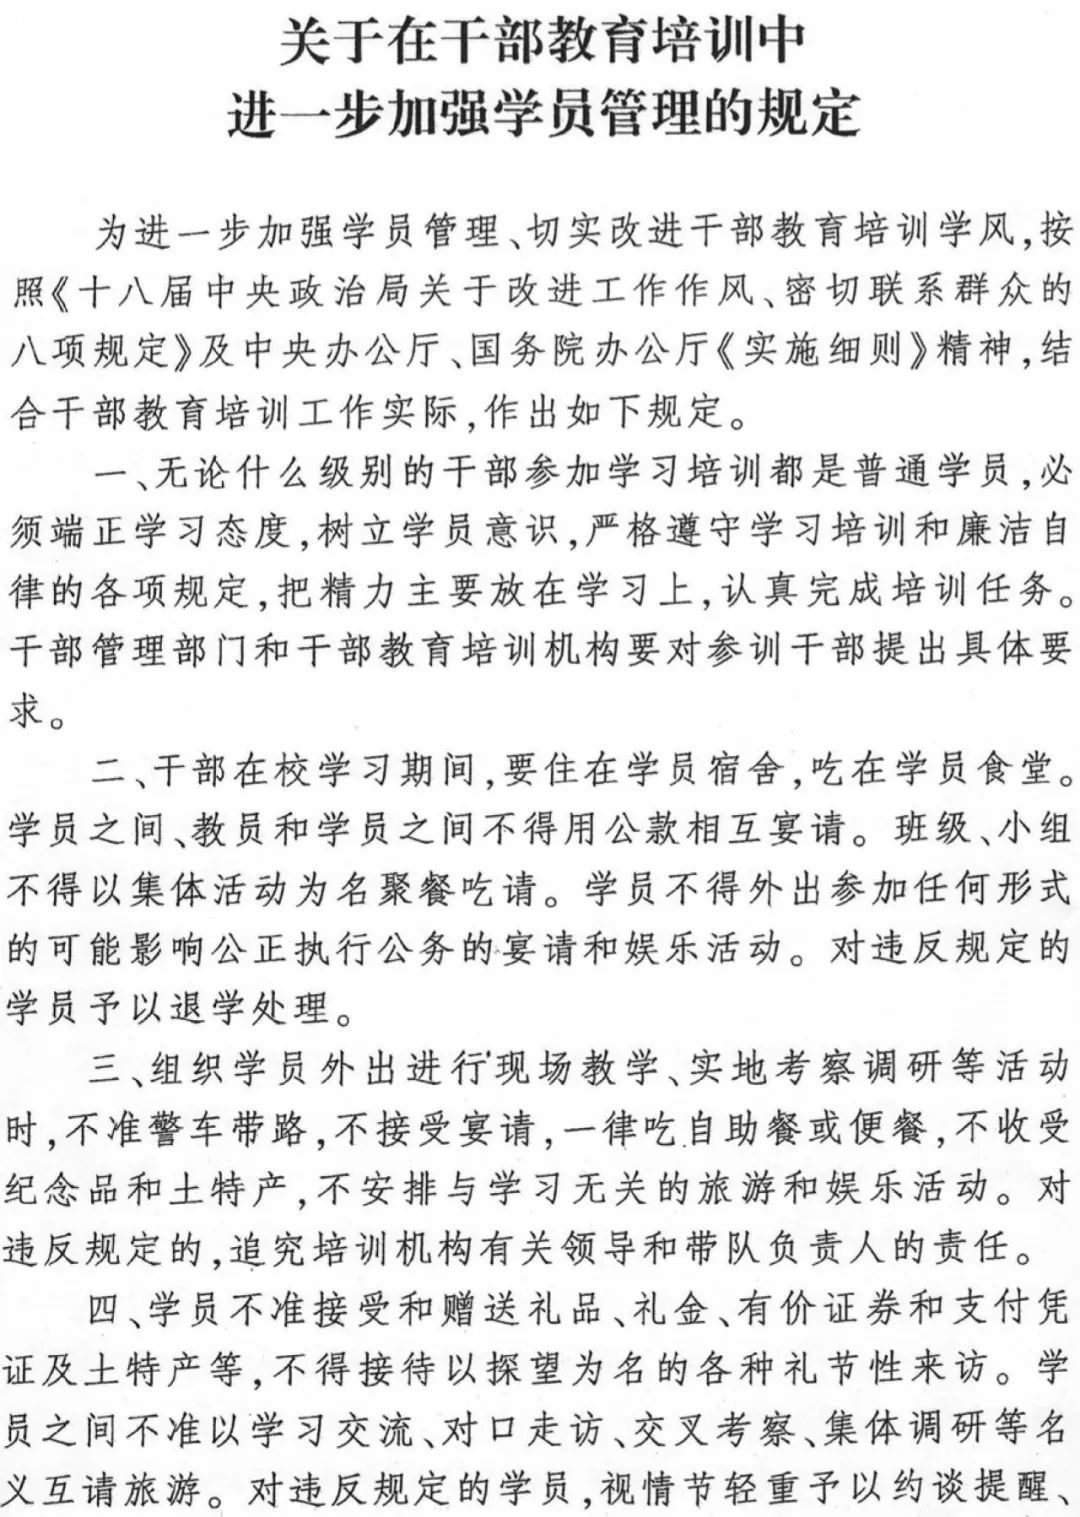 关于在干部教育培训中
进一步加强学员管理的规定
为进一步加强学员管理、切实改进干部教育培训学风,按
照《十八届中央政治局关于改进工作作风、密切联系群众的
八项规定》及中央办公厅、国务院办公厅《实施细则》精神,结
合干部教育培训工作实际,作出如下规定。
一、无论什么级别的干部参加学习培训都是普通学员,必
须端正学习态度,树立学员意识,严格遵守学习培训和廉洁自
律的各项规定,把精力主要放在学习上,认真完成培训任务。
干部管理部门和干部教育培训机构要对参训干部提出具体要
求。
二、干部在校学习期间,要住在学员宿舍,吃在学员食堂。
学员之间、教员和学员之间不得用公款相互宴请。班级、小组
不得以集体活动为名聚餐吃请。学员不得外出参加任何形式
的可能影响公正执行公务的宴请和娱乐活动。对违反规定的
学员予以退学处理。
三、组织学员外出进行现场教学、实地考察调研等活动
时,不准警车带路,不接受宴请,一律吃自助餐或便餐,不收受
纪念品和土特产,不安排与学习无关的旅游和娱乐活动。对
违反规定的,追究培训机构有关领导和带队负责人的责任。
四、学员不准接受和赠送礼品、礼金、有价证券和支付凭
证及土特产等,不得接待以探望为名的各种礼节性来访。学
员之间不准以学习交流、对口走访、交叉考察、集体调研等名
义互请旅游。对违反规定的学员,视情节轻重予以约谈提醒、